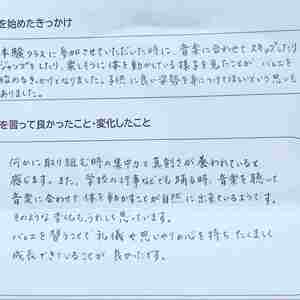 を始めたきっかけ
体験クラスに参加させていただいた時に、音楽に合わせてスキップしたり
ジャンプをしたり、楽しそうに体を動かしている様子を見たことが、バレエを
始めるきっかけとなりました。子供に良い姿勢を身につけてほしいという思いも
ありました。
を習って良かったこと・変化したこと
何かに取り組む時の集中力と真剣さが養われていると
感じます。また、学校の行事などでも踊る時、音楽を聴いて
音楽に合わせて体を動かすことが自然に出来ているようです。
そのような変化もうれしく思っています。
バレエを習うことで礼儀や思いやりの心を持ち、たくましく
成長できていることが良かったです。